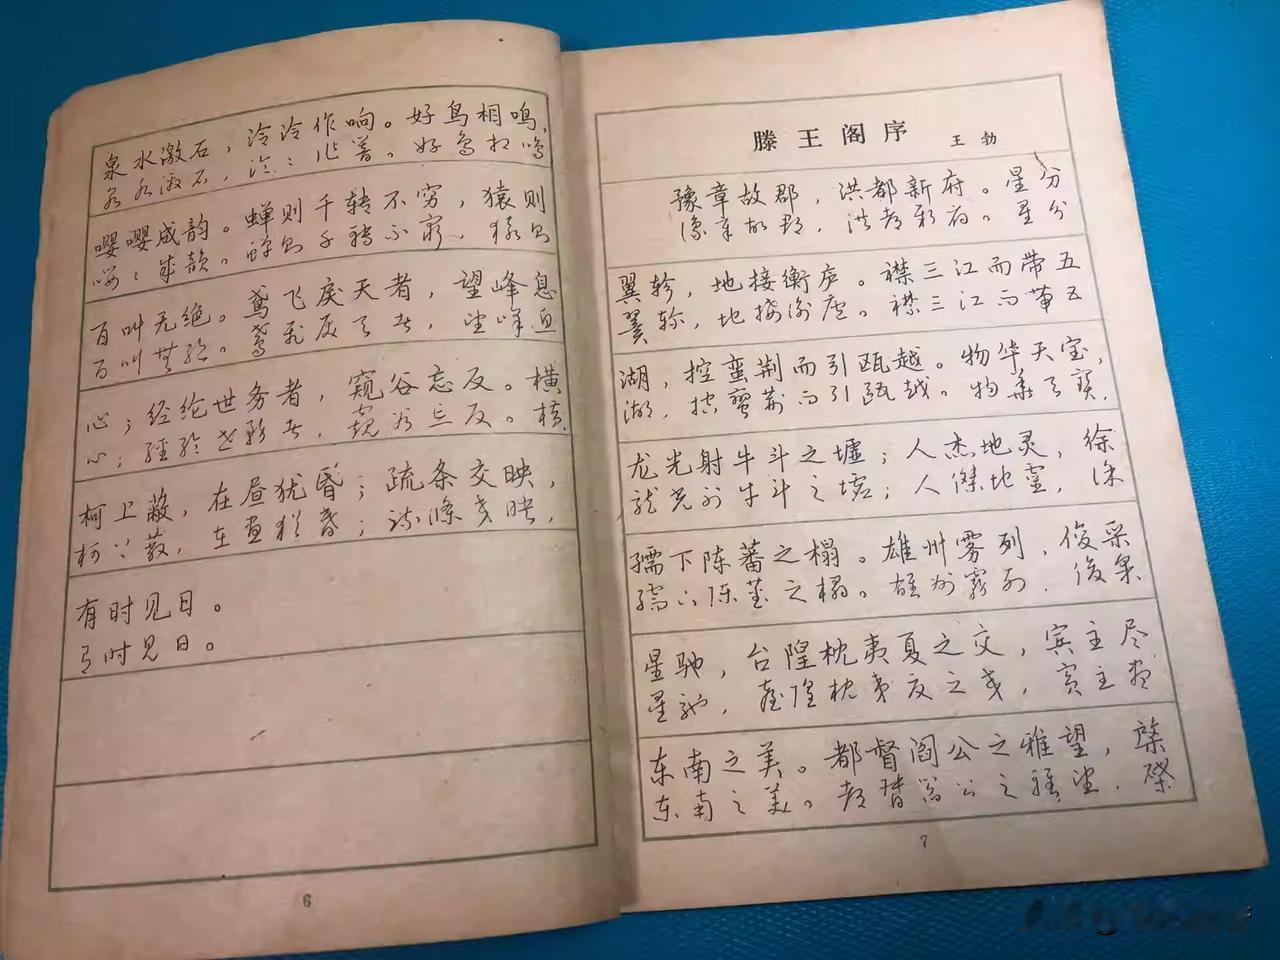 泉水激石，泠泠作响。好鸟相鸣，
泉水激石，泠〻作響。好鳥相鳴
嘤嘤成韵。蝉则千转不穷，猿则
嚶〻成韻。蟬則千轉不窮，猿則
百叫无绝。鸢飞戾天者，望峰息
百叫無絕。鳶飛戾天者，望峰息
心；经纶世务者，窥谷忘反。横
心；經綸世務者，窺谷忘反。橫
柯上蔽，在昼犹昏；疏条交映，
柯上蔽，在晝猶昏；疏條交映，
有时见日。
有时见日。
6
滕王阁序 王勃
豫章故郡，洪都新府。星分
豫章故郡，洪都新府。星分
翼轸，地接衡庐。襟三江而带五
翼軫，地接衡廬。襟三江而帶五
湖，控蛮荆而引瓯越。物华天宝，
湖，控蠻荆而引甌越。物華天寶，
龙光射牛斗之墟；人杰地灵，徐
龍光射牛斗之墟；人傑地靈，徐
孺下陈蕃之榻。雄州雾列，俊采
孺下陳蕃之榻。雄州霧列，俊采
星驰，台隍枕夷夏之交，宾主尽
星馳，臺隍枕夷夏之交，賓主盡
东南之美。都督阎公之雅望，棨
東南之美。都督閻公之雅望，棨
7